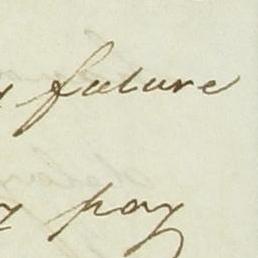 future
pay